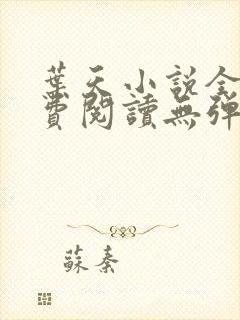 葉天小說全
費閱讀無彈
蘇秦